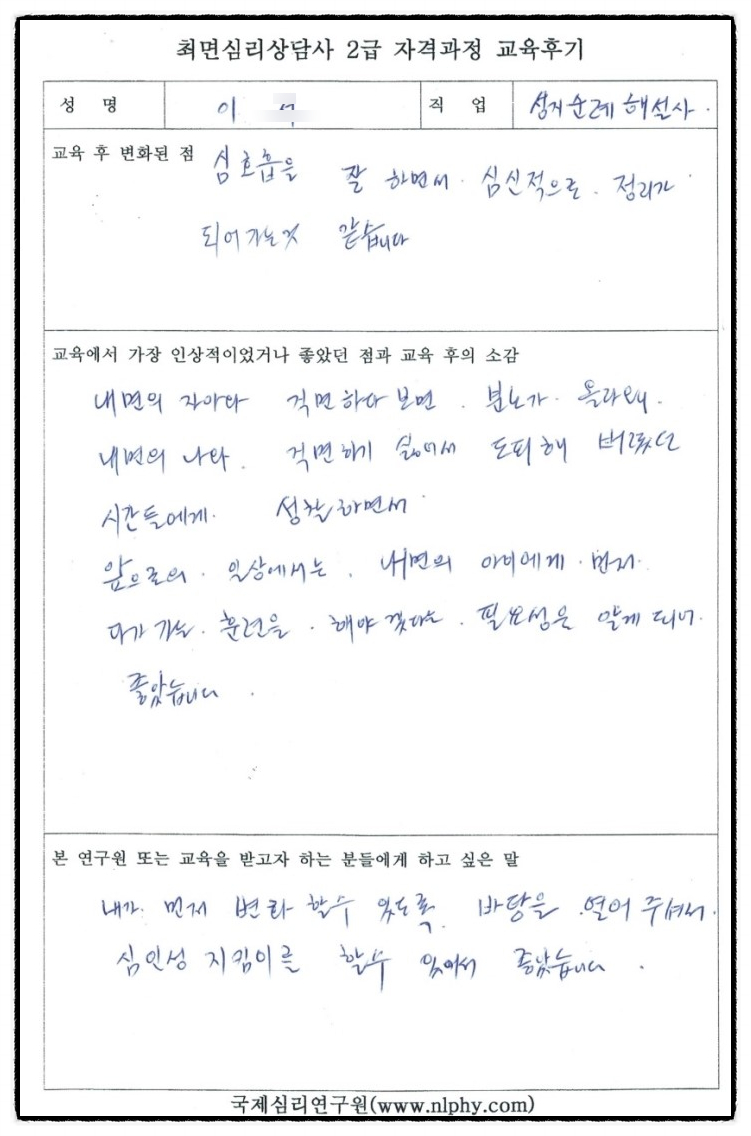 최면심리상담사 2급 자격과정 교육후기
성 명 이 직 업 성지순례해설사.
교육 후 변화된 점 심호흡을 잘 하면서. 심신적으로. 정리가
되어가는것 같습니다
교육에서 가장 인상적이었거나 좋았던 점과 교육 후의 소감
내면의 자아와 직면하다 보면. 분노가. 올라와.
내면의 나와. 직면하기 싫어서 도피해 버렸던
시간들에게. 성찰하면서
앞으로의. 일상에서는. 내면의 아이에게. 먼저.
다가 가는. 훈련을. 해야 겠다는. 필요성을 알게 되어.
좋았습니다.
본 연구원 또는 교육을 받고자 하는 분들에게 하고 싶은 말
내가. 먼저 변화 할수 있도록. 바탕을. 열어 주셔서.
심인성 지킴이를 할수 있어서 좋았습니다.
국제심리연구원(www.nlphy.com)